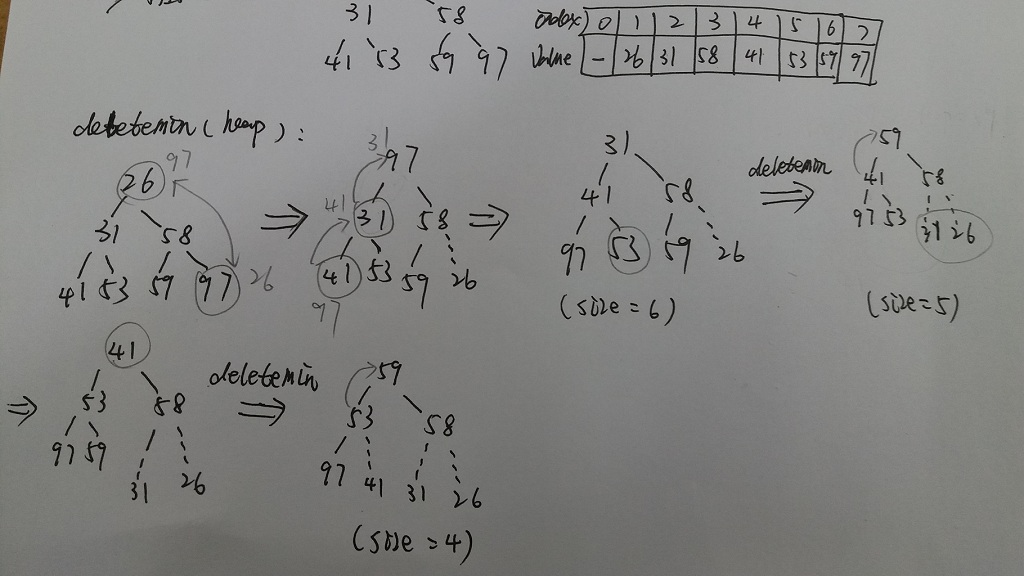 31 58
41 53 59 97
index 0 1 2 3 4 5 6 7
Value - 26 31 58 41 53 59 97
deletemin(heap):
26 97
31 58
41 53 59 97 26
⇒
31 97
41 31 58
41 53 59 26
97
⇒
31
41 58
97 53 59 26
(size = 6)
deletemin
⇒
59
41 58
97 53 31 26
(size = 5)
⇒
41
53 58
97 59
31 26
deletemin
⇒
59
53 58
97 41 31 26
(size = 4)